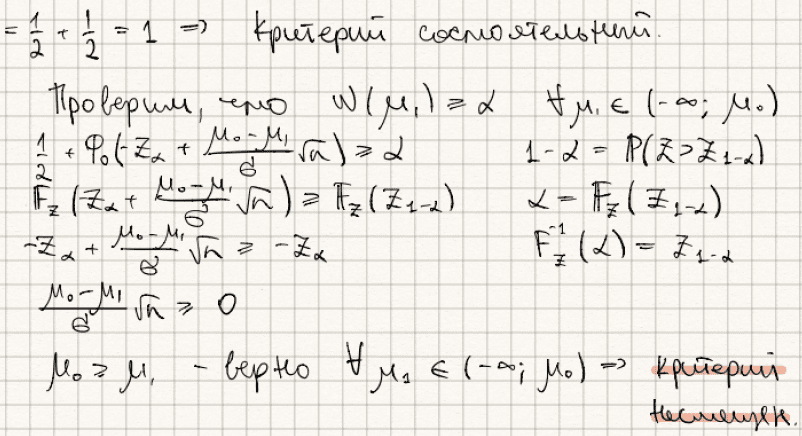 = 1/2 + 1/2 = 1 => Критерий состоятельный.
Проверим, что W(μ₁) ⩾ α ∀ μ₁ ∈ (-∞; μ₀)
1/2 + Φ₀(-Z_α + (μ₀-μ₁)/σ √n) ⩾ α 1-α = P(Z>Z_{1-α})
F_Z(-Z_α + (μ₀-μ₁)/σ √n) ⩾ F_Z(Z_{1-α}) α = F_Z(Z_{1-α})
-Z_α + (μ₀-μ₁)/σ √n ⩾ -Z_α F_Z⁻¹(α) = Z_{1-α}
(μ₀-μ₁)/σ √n ⩾ 0
μ₀ ⩾ μ₁ - верно ∀ μ₁ ∈ (-∞; μ₀) => критерий
несмещен.